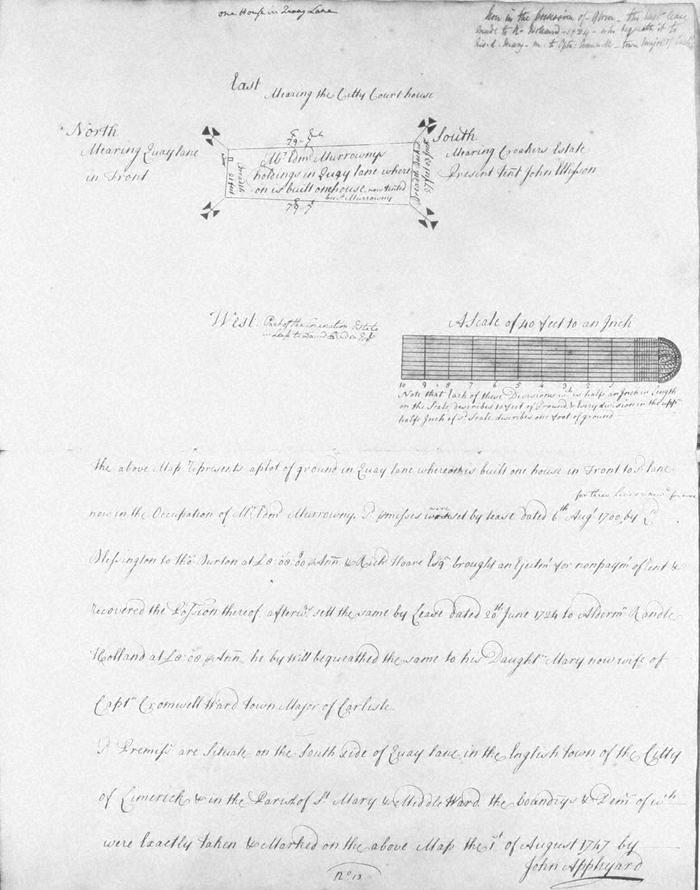 one House in Quay Lane
Now in the possession of
made to R. Holland 1724 who bequeath'd it to
his d. Mary m. to Capt. Cromwell town Major of
East
Mearing the Citty Court house
North
Mearing Quay lane
in Front
South
Mearing Croakers Estate
Present tent John Ellisson
Mr Edm Murrownys
holdings in Quay lane where
on is built one house now tented
by Murrowny
West
Part of the Corporation Estate
A Scale of 40 feet to an Inch
10 9 8 7 6 5 4 3 2 1
Note that Each of these Divisions is half an Inch in Length
on the Scale describes 10 feet of Ground & Every division in the upp
half Inch of sd Scale describes one foot of ground
the above Map Represents a plot of ground in Quay lane whereon is built one house in Front to sd lane
for three lives
now in the Occupation of Mr Edm Murrowny. sd premisses were set by lease dated 6th Augt 1700, by Ld
Blessington to Tho Burton at £8:00:00 p Ann & Richd Hoare Esqr brought an Ejectmt for nonpaymt of rent &
recovered the Possion thereof afterwds sett the same by Lease dated 20th June 1724 to Alderm Randle
Holland at £8:00 p Ann he by Will bequeathed the same to his Daughtr Mary now wife of
Captn Cromwell Ward town Major of Carlisle
sd Premiss are Situate on the South side of Quay lane in the English town of the Citty
of Limerick & in the Parish of St Mary & Middle Ward the boundrys & Dem of wch
were Exactly taken & Marked on the above Map the 1st of August 1747 by
John Appleyard
No 13